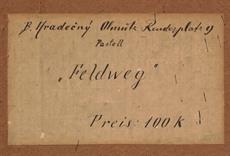 B. Hradečný Olmütz Rudolfsplatz 9
Pastell
„Feldweg"
Preis: 100 K